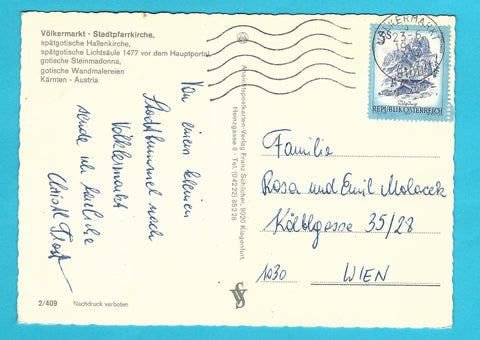 Völkermarkt - Stadtpfarrkirche,
spätgotische Hallenkirche,
spätgotische Lichtsäule 1477 vor dem Hauptportal,
gotische Steinmadonna,
gotische Wandmalereien
Kärnten - Austria
Von einem kleinen
Stadtbummel nach
Völkermarkt
sende ich herzliche
Christl
2/409
Nachdruck verboten
Ansichtskarten-Verlag Franz Schilcher, 9020 Klagenfurt,
Heinzgasse 8 - Tel. (0 42 22) 85 2 28
VÖLKERMARKT
23-6
9100
S3
REPUBLIK ÖSTERREICH
Familie
Rosa und Emil Molacek
Kölblgasse 35/28
1030 WIEN